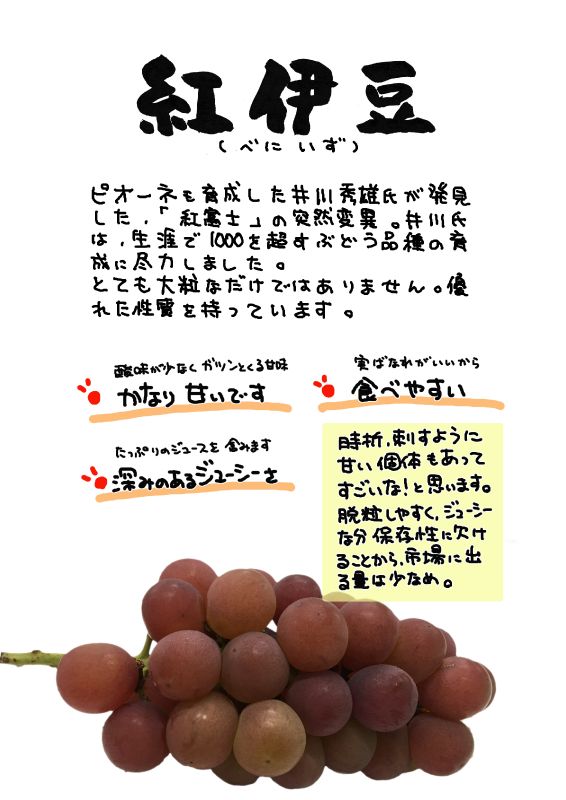 紅伊豆
(べにいず)
ピオーネを育成した井川秀雄氏が発見
した,「紅富士」の突然変異。井川氏
は,生涯で1000を超すぶどう品種の育
成に尽力しました。
とても大粒なだけではありません。優
れた性質を持っています。
酸味が少なくガツンとくる甘味
かなり甘いです
実ばなれがいいから
食べやすい
たっぷりのジュースを含みます
深みのあるジューシーさ
時折,刺すように
甘い個体もあって
すごいな!と思います。
脱粒しやすく,ジューシー
な分保存性に欠け
ることから,市場に出
る量は少なめ。